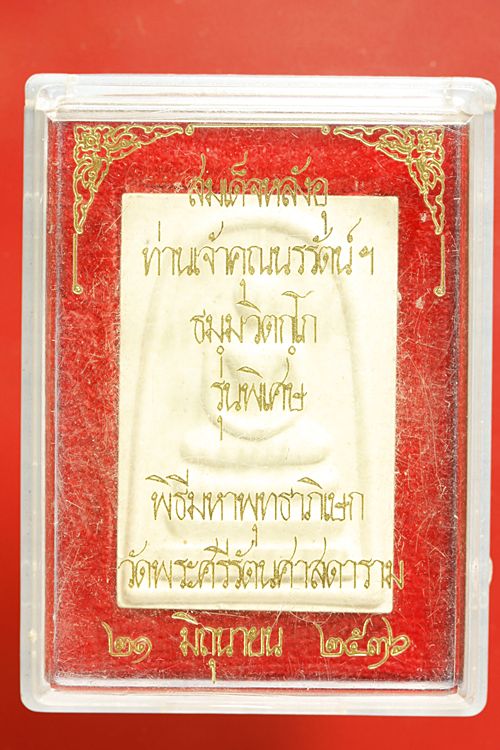 สมเด็จหลังอุ
ท่านเจ้าคุณนรรัตน์ฯ
ธมฺมวิตกฺโก
รุ่นพิเศษ
พิธีมหาพุทธาภิเษก
วัดพระศรีรัตนศาสดาราม
๒๑ มิถุนายน ๒๕๓๖